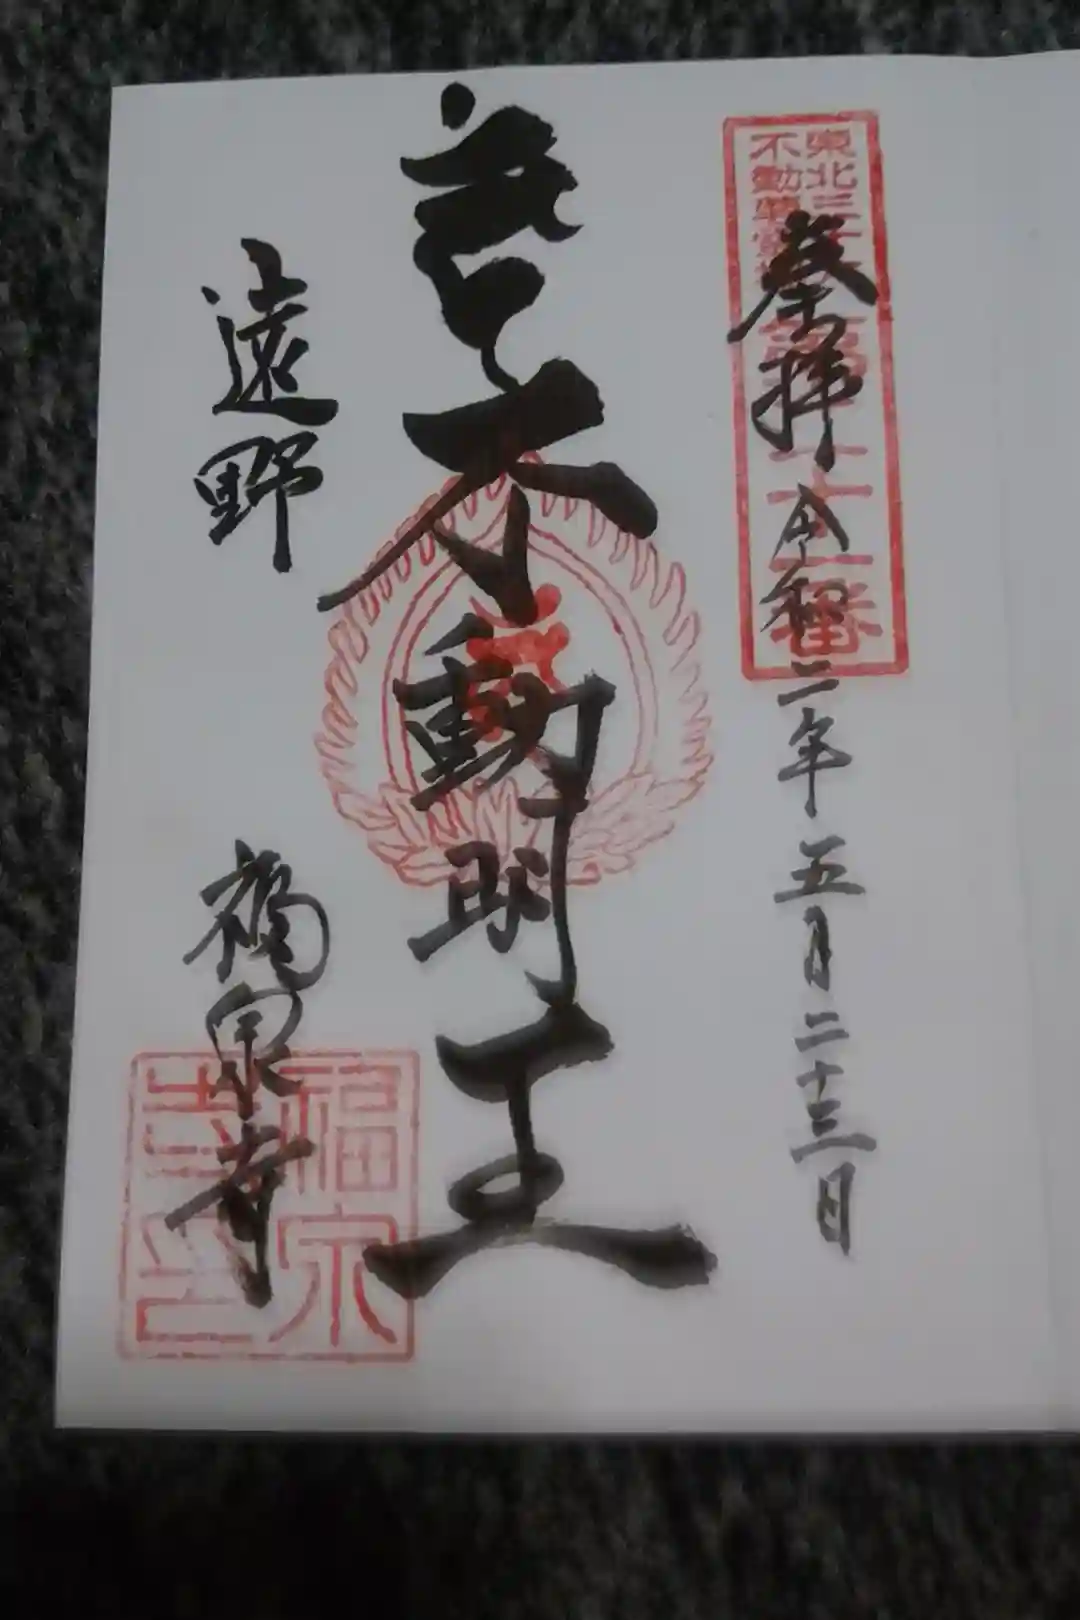 東北三十六
不動尊霊場
第二十一番
奉拝 令和二年五月二十三日
不動明王
遠野 福泉寺
福泉
寺印